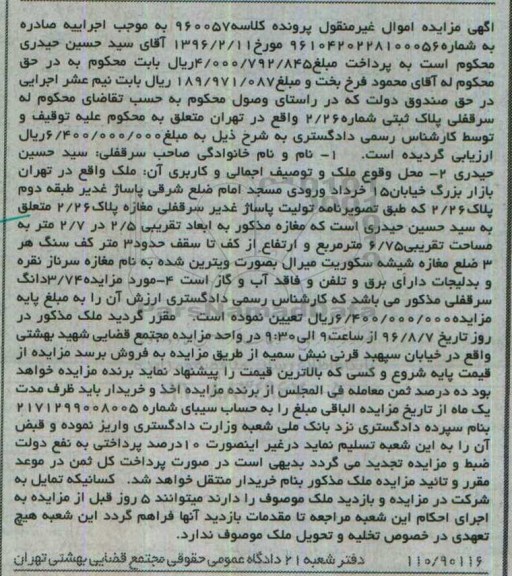 آگهی مزایده اموال غیرمنقول پرونده کلاسه۹۶۰۰۵۷ به موجب اجراییه صادره
به شماره۹۶۱۰۴۲۰۲۲۸۱۰۰۰۵۶ مورخ۱۳۹۶/۲/۱۱ آقای سید حسین حیدری
محکوم است به پرداخت مبلغ۴/۰۰۰/۷۹۲/۸۴۵ریال بابت محکوم به در حق
محکوم له آقای محمود فرخ بخت و مبلغ۱۸۹/۹۷۱/۰۸۷ ریال بابت نیم عشر اجرایی
در حق صندوق دولت که در راستای وصول محکوم به حسب تقاضای محکوم له
سرقفلی پلاک ثبتی شماره۲/۲۶ واقع در تهران متعلق به محکوم علیه توقیف و
توسط کارشناس رسمی دادگستری به شرح ذیل به مبلغ۶/۴۰۰/۰۰۰/۰۰۰ریال
ارزیابی گردیده است. ۱- نام و نام خانوادگی صاحب سرقفلی: سید حسین
حیدری ۲- محل وقوع ملک و توصیف اجمالی و کاربری آن: ملک واقع در تهران
بازار بزرگ خیابان۱۵ خرداد ورودی مسجد امام ضلع شرقی پاساژ غدیر طبقه دوم
پلاک۲/۲۶ که طبق تصویرنامه تولیت پاساژ غدیر سرقفلی مغازه پلاک۲/۲۶ متعلق
به سید حسین حیدری است که مغازه مذکور به ابعاد تقریبی ۲/۵ در ۲/۷ متر به
مساحت تقریبی۶/۷۵ مترمربع و ارتفاع از کف تا سقف حدود۳ متر کف سنگ هر
۳ ضلع مغازه شیشه سکوریت میرال بصورت ویترین شده به نام مغازه سرناز نقره
و بدلیجات دارای برق و تلفن و فاقد آب و گاز است ۴-مورد مزایده۳/۷۴دانگ
سرقفلی مذکور می باشد که کارشناس رسمی دادگستری ارزش آن را به مبلغ پایه
مزایده۶/۴۰۰/۰۰۰/۰۰۰ریال تعیین نموده است. مقرر گردید ملک مذکور در
روز تاریخ ۹۶/۸/۷ از ساعت۹ الی۹:۳۰ در واحد مزایده مجتمع قضایی شهید بهشتی
واقع در خیابان سپهبد قرنی نبش سمیه از طریق مزایده به فروش برسد مزایده از
قیمت پایه شروع و کسی که بالاترین قیمت را پیشنهاد نماید برنده مزایده خواهد
بود ده درصد ثمن معامله فی المجلس از برنده مزایده اخذ و خریدار باید ظرف مدت
یک ماه از تاریخ مزایده الباقی مبلغ را به حساب سیبای شماره ۲۱۷۱۲۹۹۰۰۸۰۰۵
بنام سپرده دادگستری نزد بانک ملی شعبه وزارت دادگستری واریز نموده و قبض
آن را به این شعبه تسلیم نماید درغیر اینصورت ۱۰درصد پرداختی به نفع دولت
ضبط و مزایده تجدید می گردد بدیهی است در صورت پرداخت کل ثمن در موعد
مقرر و تائید مزایده ملک مذکور بنام خریدار منتقل خواهد شد. کسانیکه تمایل به
شرکت در مزایده و بازدید ملک موصوف را دارند میتوانند ۵ روز قبل از مزایده به
اجرای احکام این شعبه مراجعه تا مقدمات بازدید آنها فراهم گردد این شعبه هیچ
تعهدی در خصوص تخلیه و تحویل ملک موصوف ندارد.
۱۱۰/۹۰۱۱۶ دفتر شعبه ۲۱ دادگاه عمومی حقوقی مجتمع قضایی بهشتی تهران